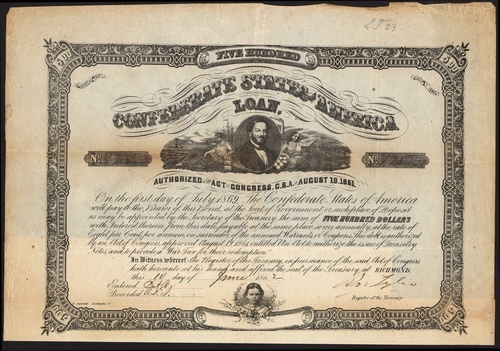 L F 23
FIVE HUNDRED
500 500
CONFEDERATE STATES OF AMERICA
LOAN,
No No
AUTHORIZED BY ACT OF CONGRESS, C.S.A. OF AUGUST 19, 1861.
On the first day of July 1869, The Confederate States of America
will pay to the Bearer of this Bond, at the Seat of Government or such place of Deposit
as may be appointed by the Secretary of the Treasury, the sum of FIVE HUNDRED DOLLARS
with Interest thereon from this date, payable at the same place, semi annually, at the rate of
Eight per Cent per annum on surrender of the annexed Warrants or Coupons. This debt is authorized
By an Act of Congress approved August 19, 1861, entitled "An Act to authorize the issue of Treasury
Notes, and to provide a War Tax for their redemption."
In Witness whereof the Register of the Treasury, in pursuance of the said Act of Congress
hath hereunto set his hand and affixed the seal of the Treasury, at RICHMOND,
this day of June 1862
Entered
Recorded
Register of the Treasury.
500 500